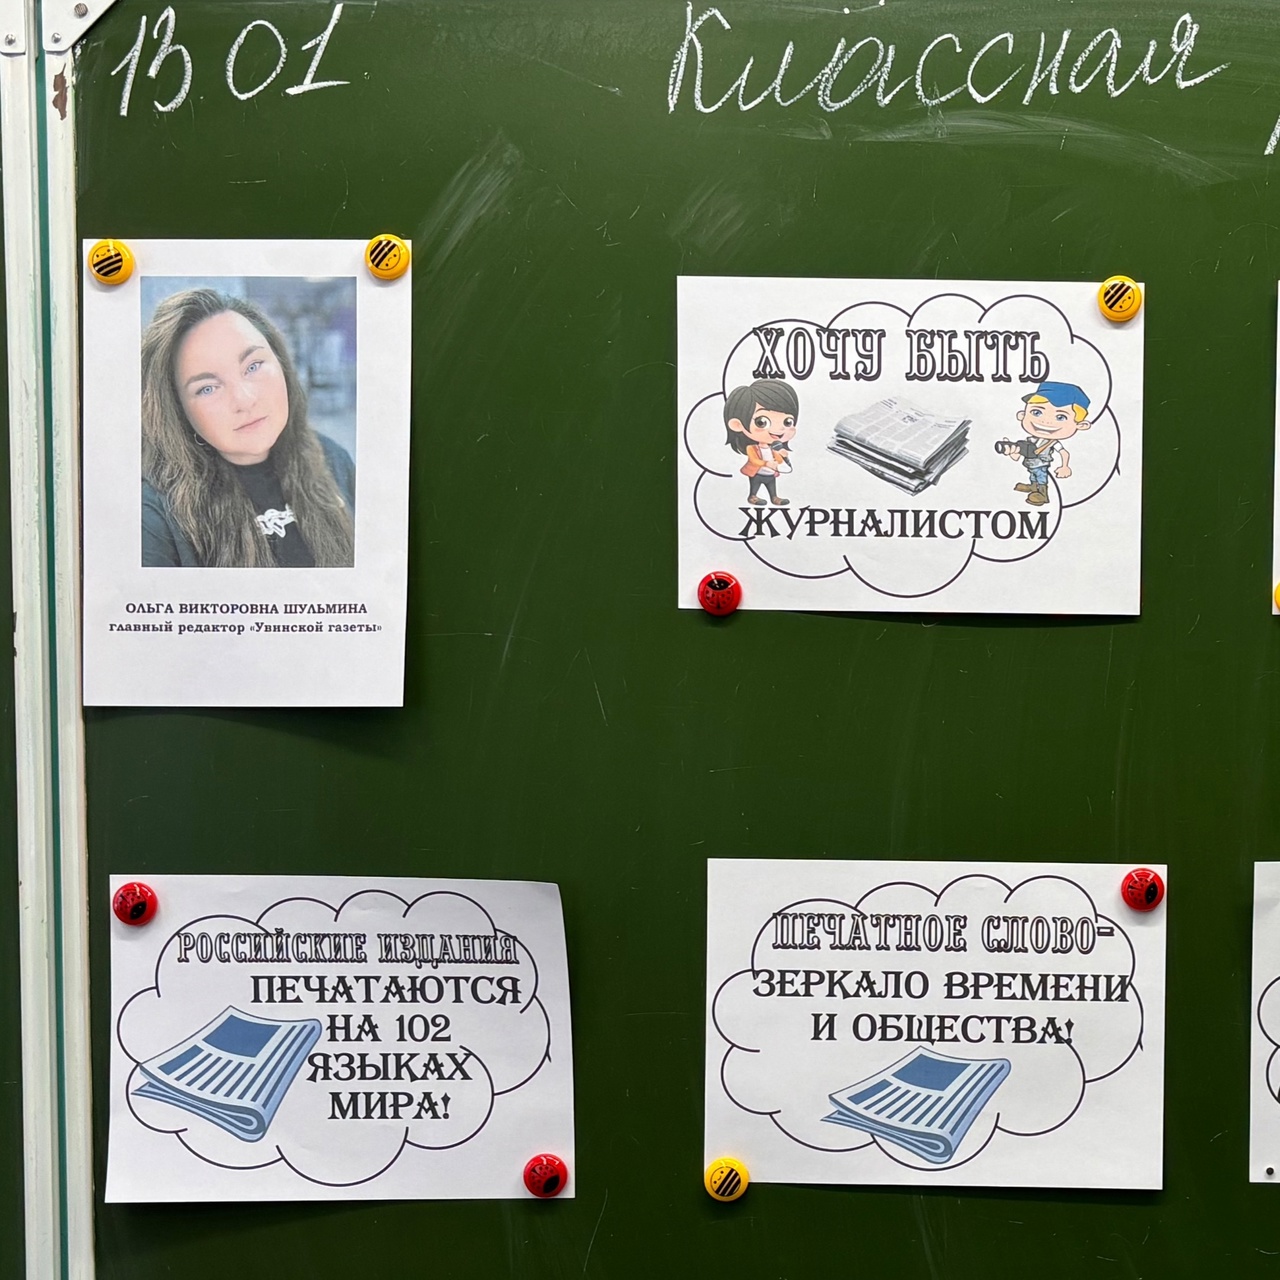 13 01
Классная
ОЛЬГА ВИКТОРОВНА ШУЛЬМИНА
главный редактор «Увинской газеты»
ХОЧУ БЫТЬ
ЖУРНАЛИСТОМ
РОССИЙСКИЕ ИЗДАНИЯ
ПЕЧАТАЮТСЯ
НА 102
ЯЗЫКАХ
МИРА!
ПЕЧАТНОЕ СЛОВО-
ЗЕРКАЛО ВРЕМЕНИ
И ОБЩЕСТВА!